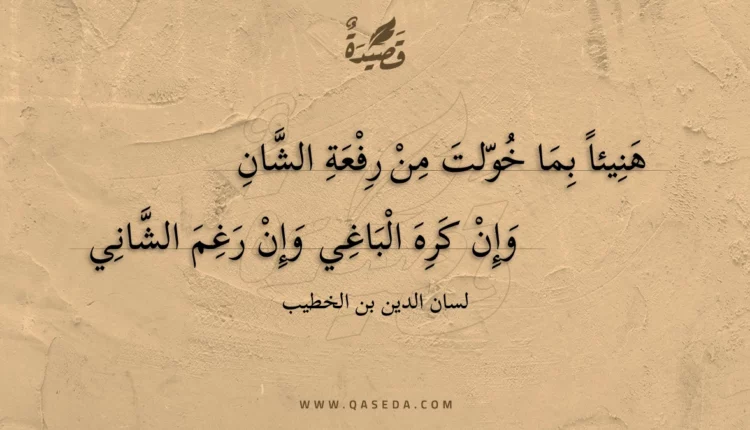 قَصِيدَةٌ
هَنِيئاً بِمَا خُوّلتَ مِنْ رِفْعَةِ الشَّانِ
وَإِنْ كَرِهَ الْبَاغِي وَإِنْ رَغِمَ الشَّانِي
لسان الدين بن الخطيب
WWW.QASEDA.COM